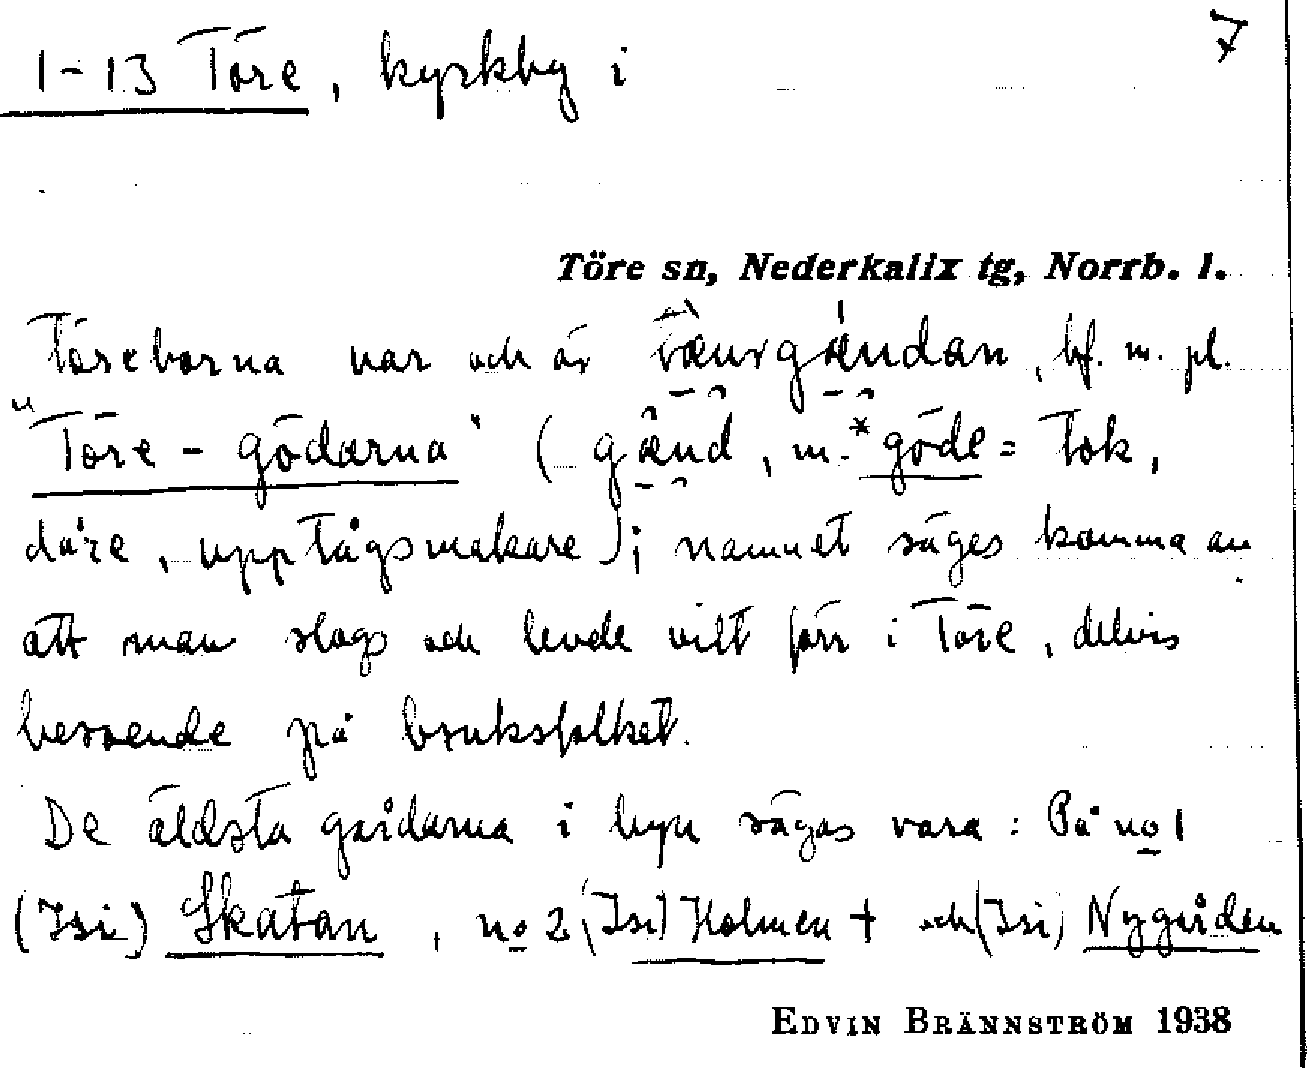 7
1-13 Töre, kyrkby i
Töre sn, Nederkalix tg, Norrb. l.
Töreborna var och är , bf. m. pl.
"Töre-gödarna" ( , m. *göde = tok,
dåre, upptågsmakare); namnet säges komma av
att man slogs och levde vilt förr i Töre, delvis
beroende på bruksfolket.
De äldsta gårdarna i byn sägas vara: På no 1
(Isi) Skatan, no 2 (Isi) Holmen + och (Isi) Nygården
EDVIN BRÄNNSTRÖM 1938